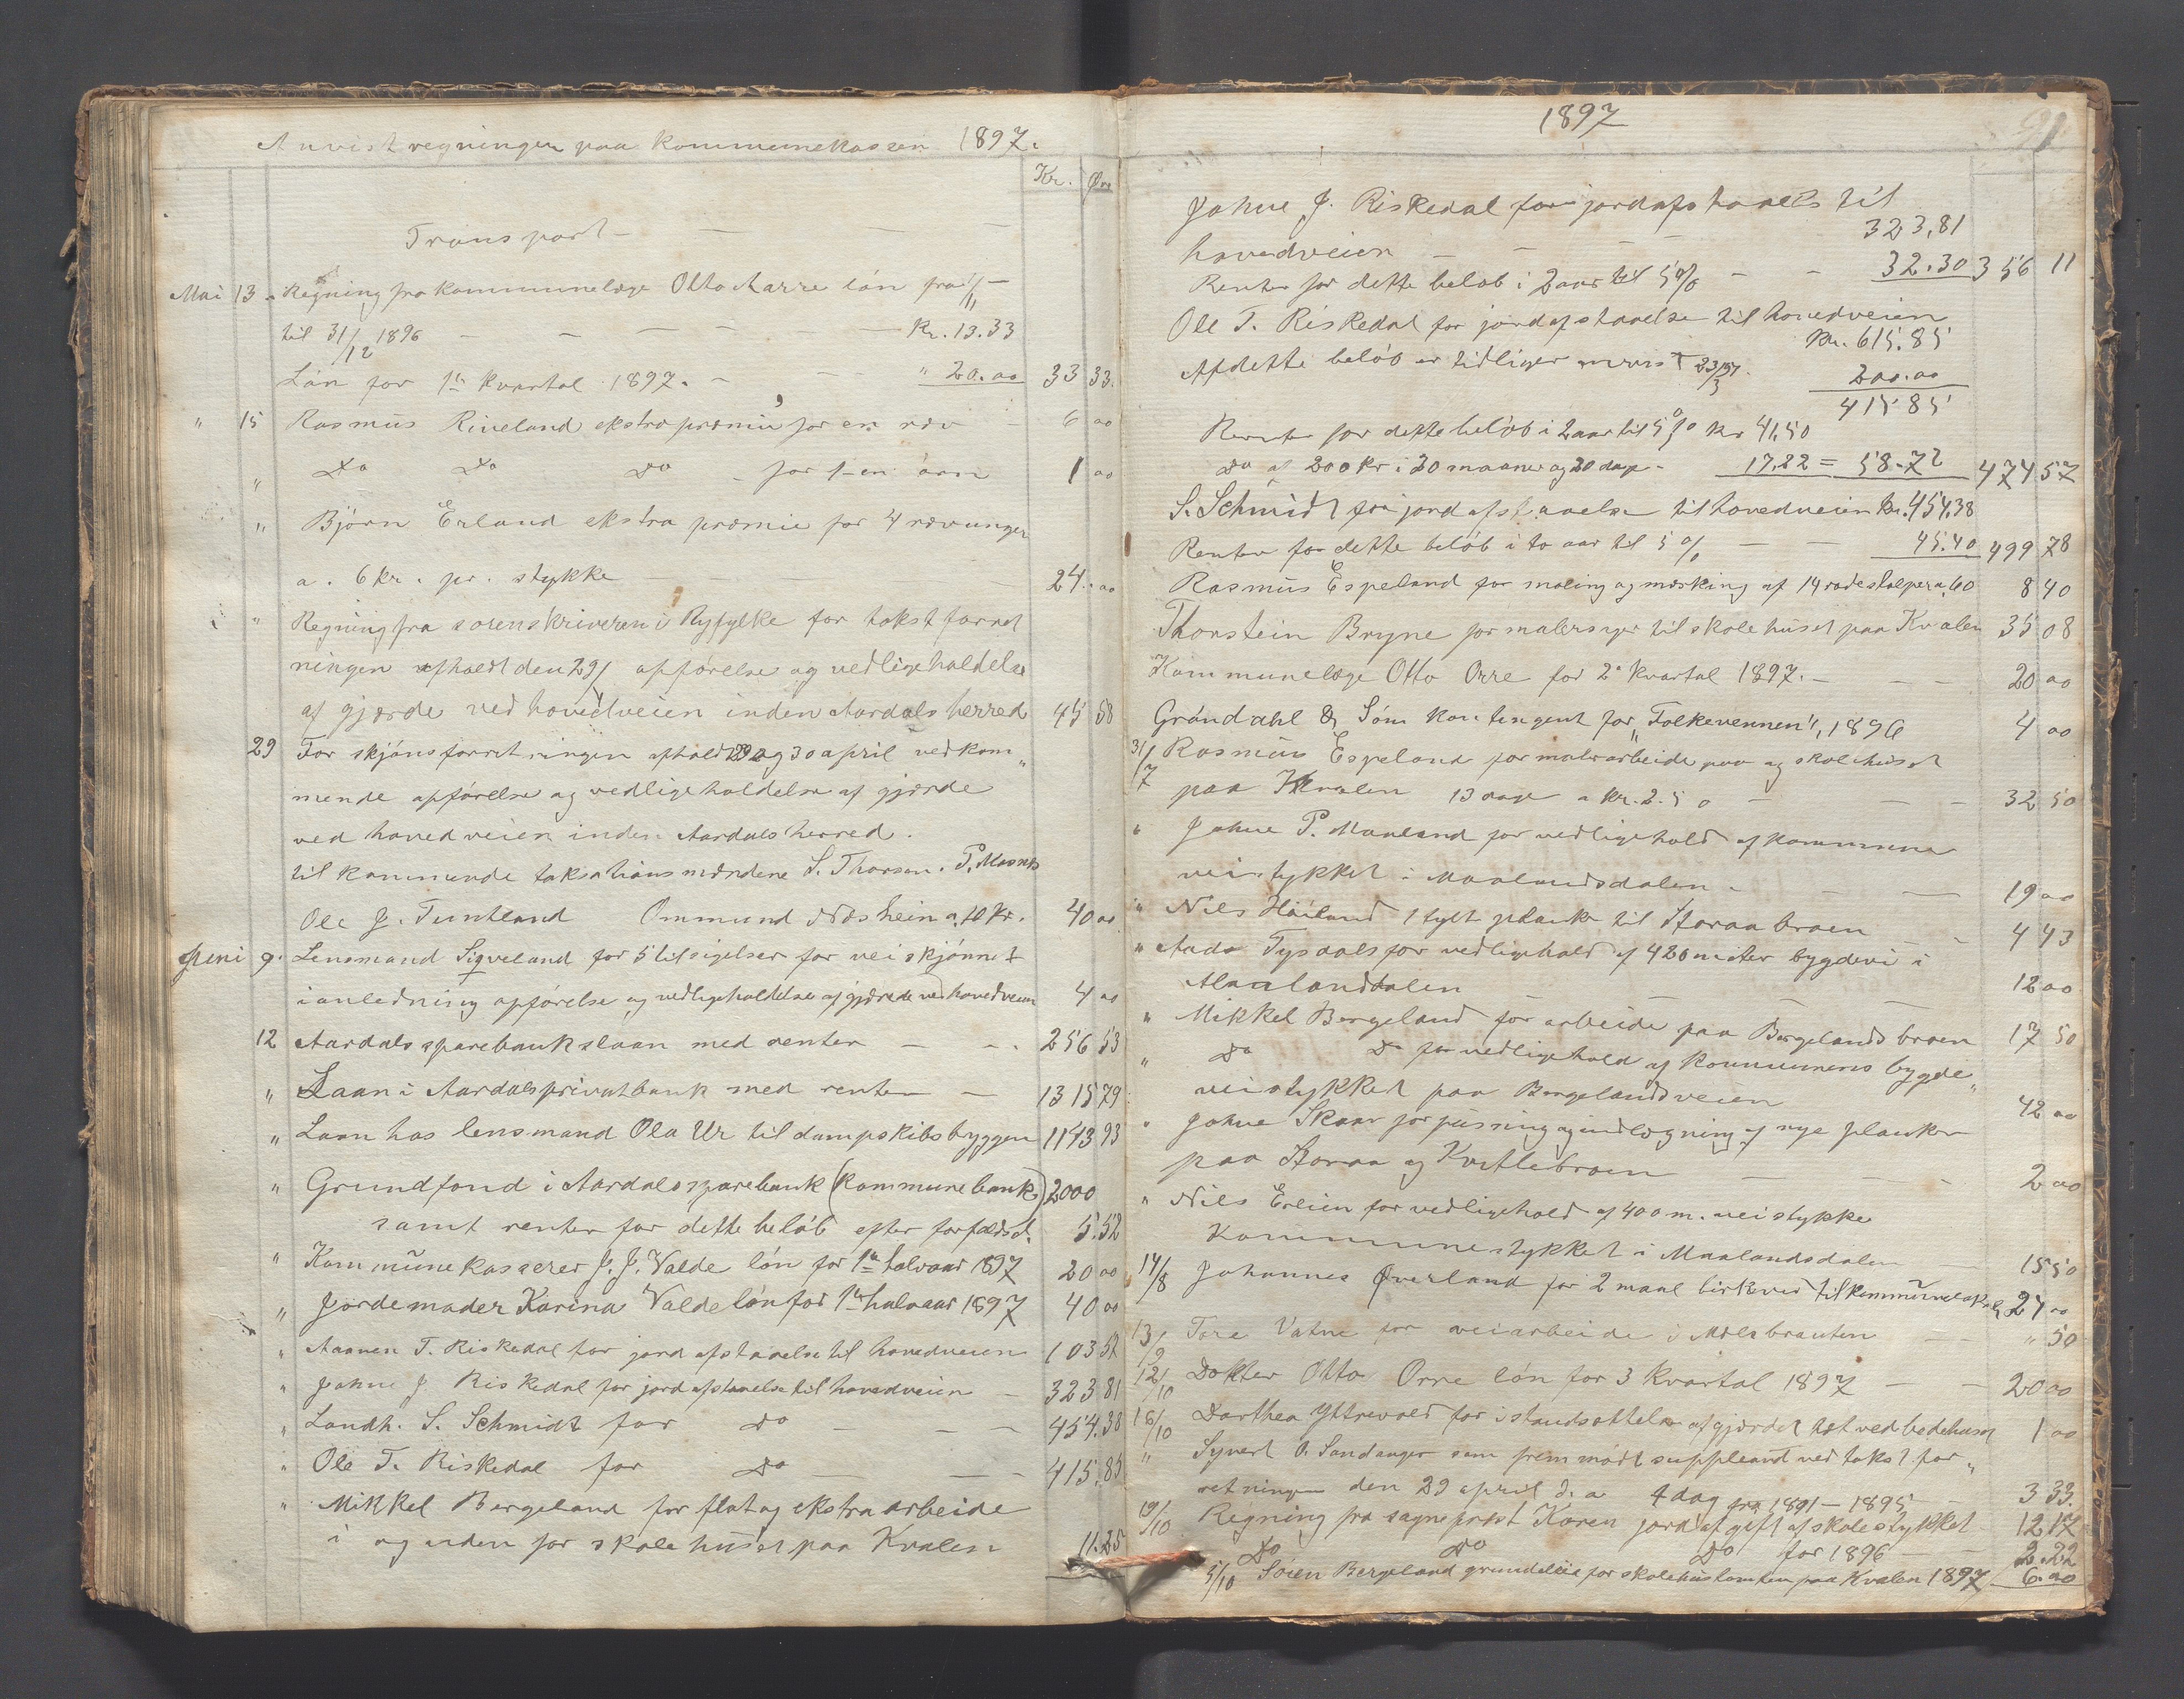 Anvist regninger paa kommunekassen 1897.
Kr. Øre
Transport — — —
Mai 13. Regning fra kommunelæge Otto Aarre lön fra 1/11 —
til 31/12 1896 — — — — Kr. 13.33
Lön for 1ste kvartal 1897. — — " 20.00 33 33.
" 15 Rasmus Riveland ekstra præmie for en ræv — 6 00
" Do Do Do for 1 en örn 1 00
" Björn Erland ekstra præmie for 4 rævunger
a. 6 kr. pr. stykke — — — 24.00
" Regning fra sorenskriveren i Ryfylke for takst forret
ningen afholdt den 29/4 opförelse og vedligeholdelse
af gjærde ved hovedveien inden Aardals herred 45 58
29 For skjönsforretningen afholdt 29 og 30 april vedkom„
mende opförelse og vedligeholdelse af gjærde
ved hovedveien inden Aardals herred.
til kommende taksationsmændene S. Thorsen. P.
Ole J. Tuntland Ommund Næsheim a. 10 Kr. 40 00
Juni 9. Lensmand Sigveland for 5 tilsigelser for veiskjönnet
i anledning opförelse og vedligeholdelse af gjærde ved hovedveien 4 00
12 Aardals sparebankslaan med renter — — 256 53
" Laan i Aardals privatbank med renter — 1315 79
" Laan hos lensmand Ola Ur til dampskibsbryggen 1143 93
" Grundfond i Aardals sparebank (kommunebank) 2000
samt renter for dette belöb efter forfaldsd. 5.52
" Kommunekasserer J. J. Valde lön for 1ste halvaar 1897 20 00
" Jordemoder Karina Valde lön for 1ste halvaar 1897 40 00
" Aanen T. Riskedal for jord afstaaelse til hovedveien 103 52
" Johne J Riskedal for jord afstaaelse til hovedveien — 323 81
" Landh. S. Schmidt for Do — — — 454.38
" Ole T. Riskedal for Do — — — 415.85
" Mikkel Bergeland for flat og ekstra arbeide
i og uden for skolehuset paa Kvalen 11.25
1897
91
Johne J. Riskedal for jordafstaaelse til
hovedveien — — — — 323,81
Renter for dette belöb i 2 aar til 5 % — — 32.30 356 11
Ole T. Riskedal for jordafstaaelse til hovedveien
Kr. 615.85
Af dette belöb er tidliger anvist 23/3 97. 200.00
415 85
Renter for dette belöb i 2 aar til 5 % kr 41,50
Do af 200 kr i 20 maaner og 20 dage — 17.22 = 58.72 474 57
S. Schmidt for jordafstaaelse til hovedveien kr. 454.38
Renter for dette belöb i to aar til 5 % — — 45.40 499 78
Rasmus Espeland for maling og mærking af 14 rodestolper a. 60 8 40
Thorstein Bryne for malersager til skolehuset paa Kvalen 35 08
Kommunelæge Otto Orre for 2det kvartal 1897. — — — 20 00
Gröndahl & Sön kontingent for „Folkevennen", 1896 4 00
31/7 Rasmus Espeland for malerarbeide paa og skolehuset
paa Kvalen 13 dage a kr. 2.50 — — — 32 50
" Johne P. Maaland for vedligehold af kommune
veistykket i Maalandsdalen — — — 19 00
" Nils Höiland 1 tylt planker til Storaa broen — — 4 43
" Aade Tysdals for vedligehold af 420 meter bygdevei i
Maalanddalen — — — 12 00
" Mikkel Bergeland for arbeide paa Bergelands broen 17 50
" Do Do for vedligehold af kommunens bygde„
veistykket paa Bergelandsveien 42 00
" Johne Skaar for pusning og indlægning af nye planker
paa Storaa og Kvitlebroen — — — 2 00
" Nils Erlien for vedligehold af 400 m. veistykke
Kommunestykket i Maalandsdalen — 15 50
14/8 Johannes Överland for 2 maal birkeved til kommunelokale 24 00
13/9 Tore Vatne for veiarbeide i Mölebrauten — — " 50
12/10 Dokter Otto Orre lön for 3 kvartal 1897 — — 20 00
16/10 Darthea Yttrevold for istandsættelse af gjærdet tæt ved bedehuset 1 00
" Syvert O. Sandanger som fremmödt suppleant ved takst for„
retningen den 29 april d. a. 4 dag — 3 33.
19/10 Regning fra sogneprest Koren jord afgift af skolestykket fra 1891–1895 12 17
Do Do Do for 1896 — — 2.22
5/10 Sören Bergeland grundleie for skolehustomten paa Kvalen 1897 6.00